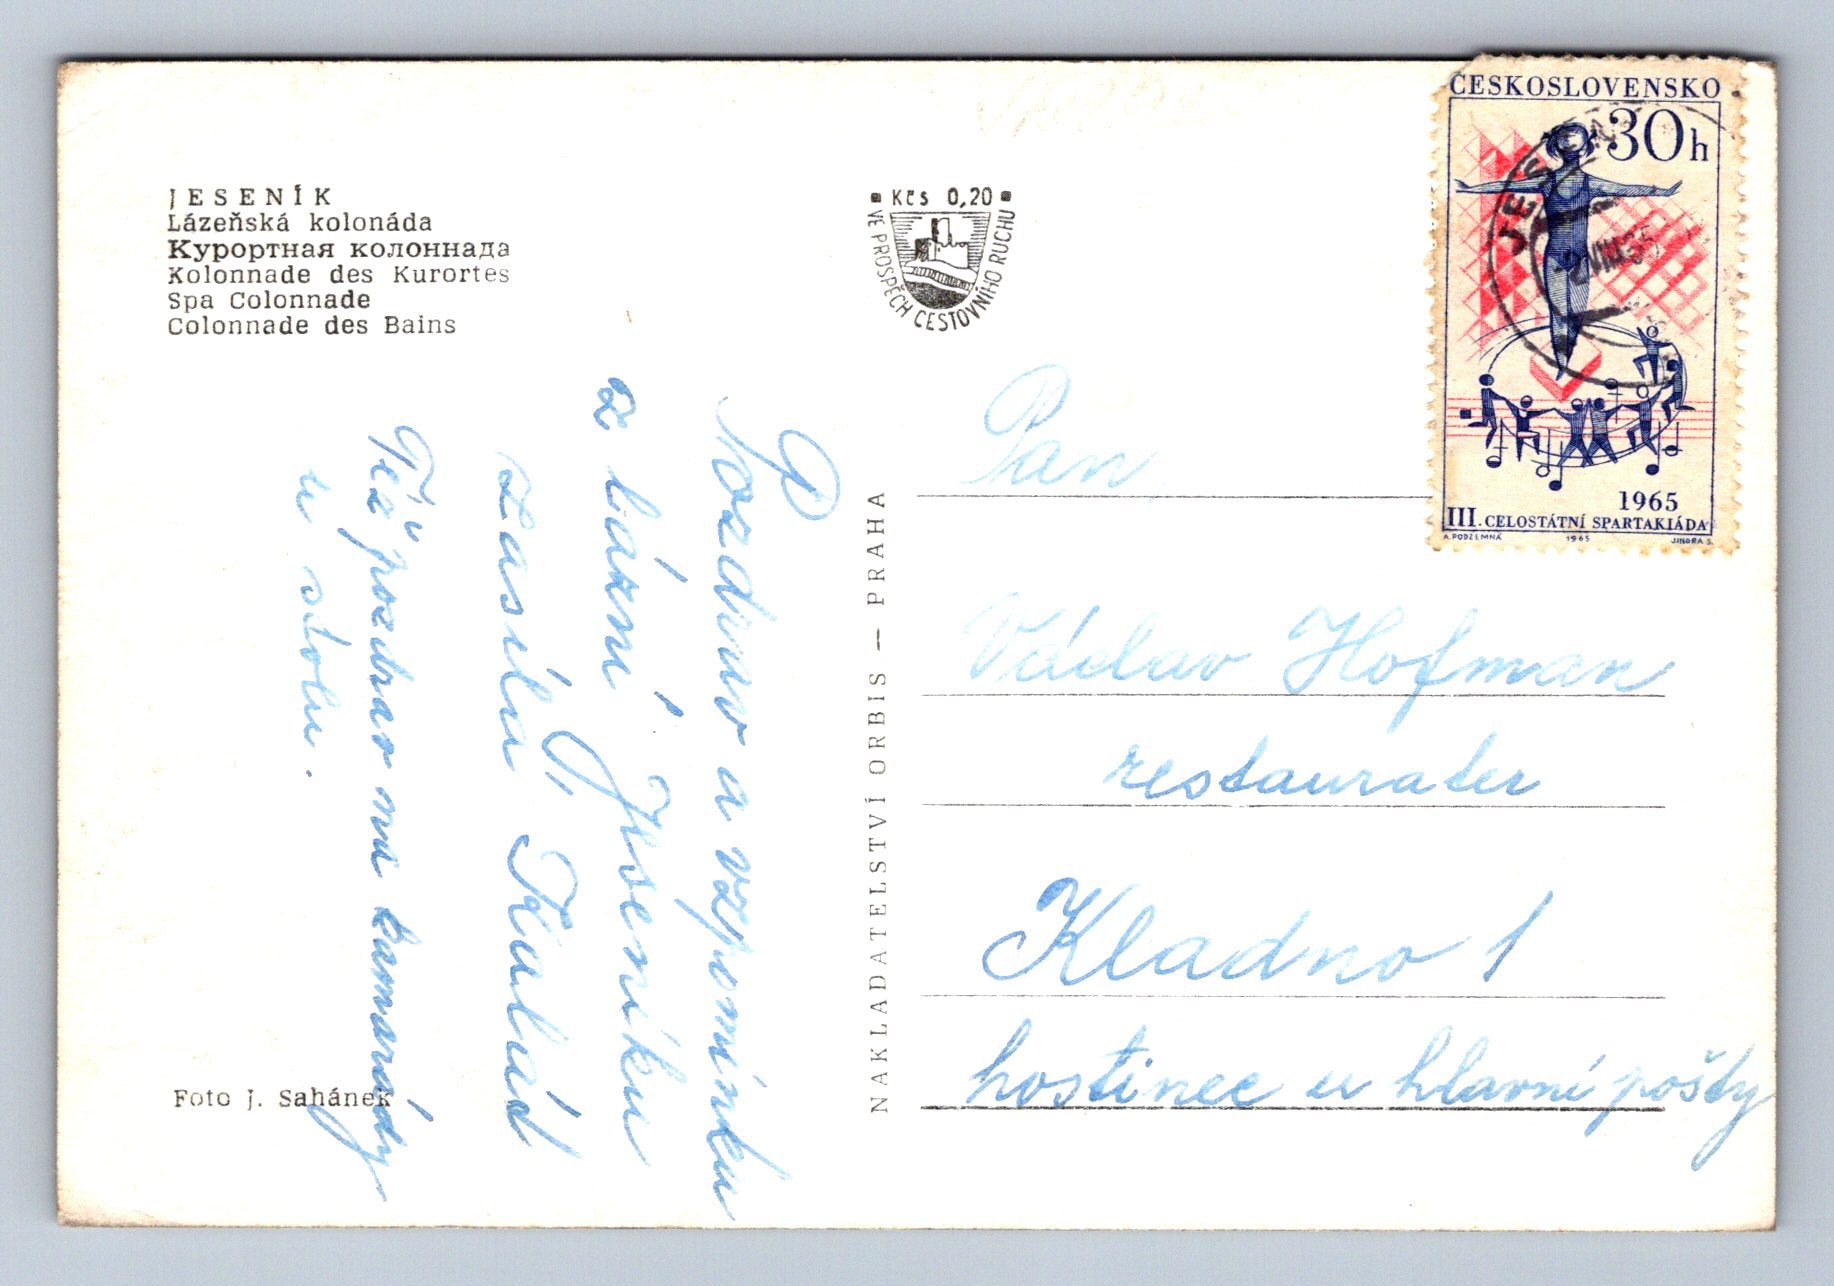 JESENÍK
Lázeňská kolonáda
Курортная колоннада
Kolonnade des Kurortes
Spa Colonnade
Colonnade des Bains
Pozdrav a vzpomínku
z lázní Jeseníku
zasílá
Též pozdrav na kamarády
u stolu.
Foto J. Sahánek
NAKLADATELSTVÍ ORBIS — PRAHA
Kčs 0,20
VE PROSPĚCH CESTOVNÍHO RUCHU
ČESKOSLOVENSKO
30h
JESENÍK
1965
III. CELOSTÁTNÍ SPARTAKIÁDA
A. PODZEMNÁ 1965 JINDRA S.
Pan
Václav Hofman
restaurater
Kladno 1
hostinec u hlavní pošty